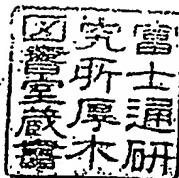 富士通研
究所厚木
図書室蔵書